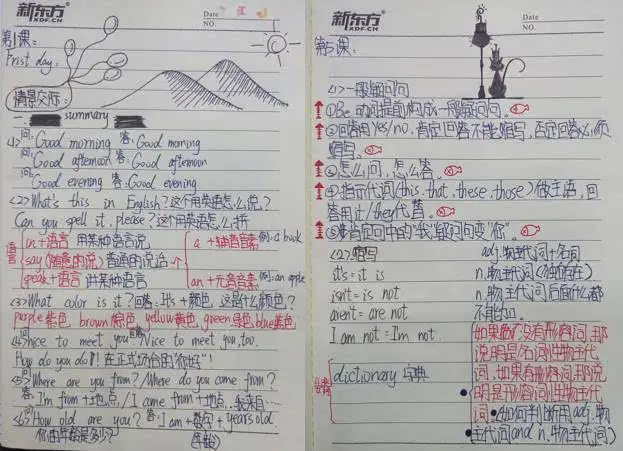 新东方
XDF.CN
Date
NO.
第1课:
Frist day.
情景交际:
一. summary
<1>问: Good morning 答: Good morning
问: Good afternoon 答: Good afternoon
问: Good evening 答: Good evening
<2>What's this in English?这个用英语怎么说?
Can you spell it, please?这个用英语怎么拼
语言
in+语言 用某种语言说
say(随意的说)普通的说话
speak+语言 讲某种语言
个
a +辅音音素 例:a book
an+元音音素 例:an apple
<3>What color is it?回答:It's+颜色. 这是什么颜色?
purple紫色, brown棕色 yellow黄色, green绿色 blue蓝色
<4>nice to meet you 回答 Nice to meet you, too.
How do you do! 在正式场合的"你好"!
<5>Where are you from?/Where do you come from?
答: I'm from+地点./I came from+地点. 我来自…
<6>How old are you? 答: I am+数字+years old
你的年龄是多少? (年龄)
新东方
XDF.CN
Date
NO.
第5课:
<1>一般疑问句
①Be动词提前构成一般疑问句。
②回答用yes/no, 肯定回答不能缩写, 否定回答必须
缩写。
③怎么问, 怎么答。
④指示代词(this. that. these. those)做主语, 回
答用it/they代替。
⑤肯定句中的"我"疑问句变"你".
<2>缩写
it's=it is
isn't= is not
aren't= are not
I am not=I'm not
dictionary 字典
adj.物主代词+名词
n.物主代词(独立存在)
n.物主代词后面什么都
不能加.
如果句子没有形容词,那
说明是名词性物主代
词, 如果有形容词,那说
明是形容词性物主代
词。(如何判断用adj.物
主代词and n.物主代词)